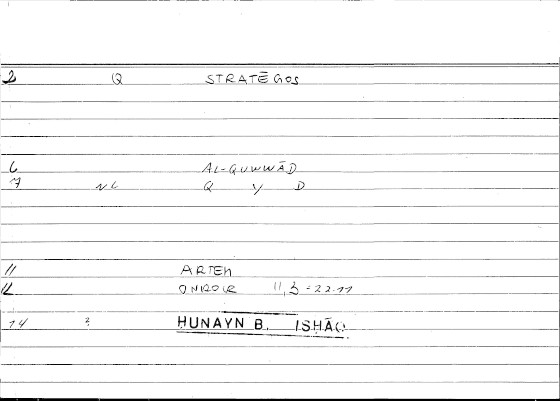 2 Q STRATĒGOS
6 AL-QUWWĀD
7 NL Q Y D
11 ARTEM
12 ONIROCR 11,3 = 22.11
14 2 HUNAYN B. ISHĀQ